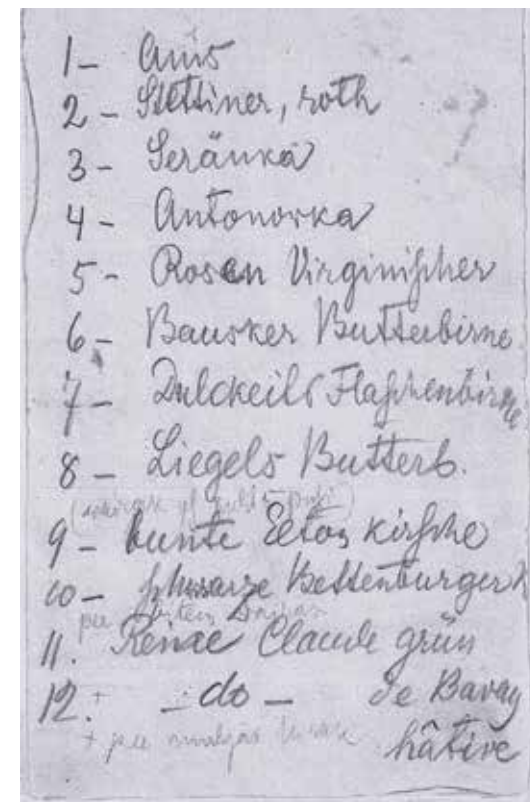 1 - Anis
2 - Stettiner, roth
3 - Seränka
4 - Antonovka
5 - Rosen Virginischer
6 - Bausker Butterbirne
7 - Dulckeils Flaschenbirne
8 - Liegels Butterb.
9 - bunte Elton kirsche
10 - schwarze Bettenburger
pee
11. Reine Claude grün
12. + - do - de Bavay
+ pee
hâtive